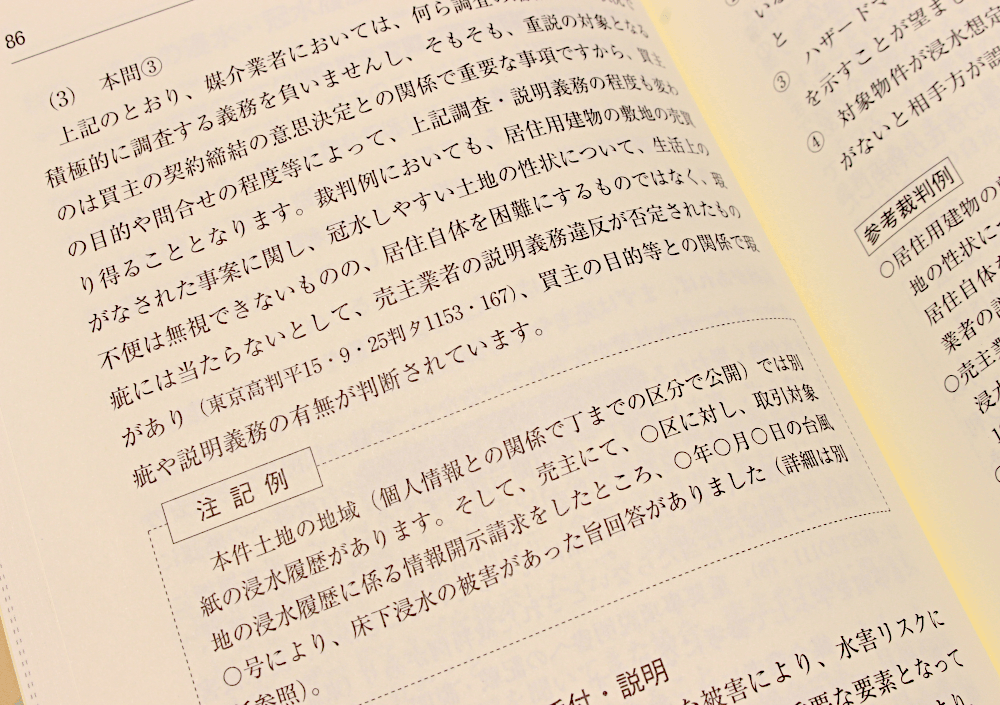 86
(3) 本問③
上記のとおり、媒介業者においては、何ら調査の
積極的に調査する義務を負いませんし、そもそも、重説の対象となる
のは買主の契約締結の意思決定との関係で重要な事項ですから、買主
の目的や問合せの程度等によって、上記調査・説明義務の程度も変わ
り得ることとなります。裁判例においても、居住用建物の敷地の売買
がなされた事案に関し、冠水しやすい土地の性状について、生活上の
不便は無視できないものの、居住自体を困難にするものではなく、瑕
疵には当たらないとして、売主業者の説明義務違反が否定されたもの
があり（東京高判平15・9・25判タ1153・167）、買主の目的等との関係で瑕
疵や説明義務の有無が判断されています。
注記例
本件土地の地域（個人情報との関係で丁までの区分で公開）では別
紙の浸水履歴があります。そして、売主にて、○区に対し、取引対象
地の浸水履歴に係る情報開示請求をしたところ、○年○月○日の台風
○号により、床下浸水の被害があった旨回答がありました（詳細は別
参照）。
付・説明
な被害により、水害リスクに
要な要素となって
より、
いな
と
ハザードマ
③
を示すことが望ま
対象物件が浸水想定
④
がないと相手方が誤
参考裁判例
○居住用建物の
地の性状に
居住自体
業者の説
○売主業
浸水